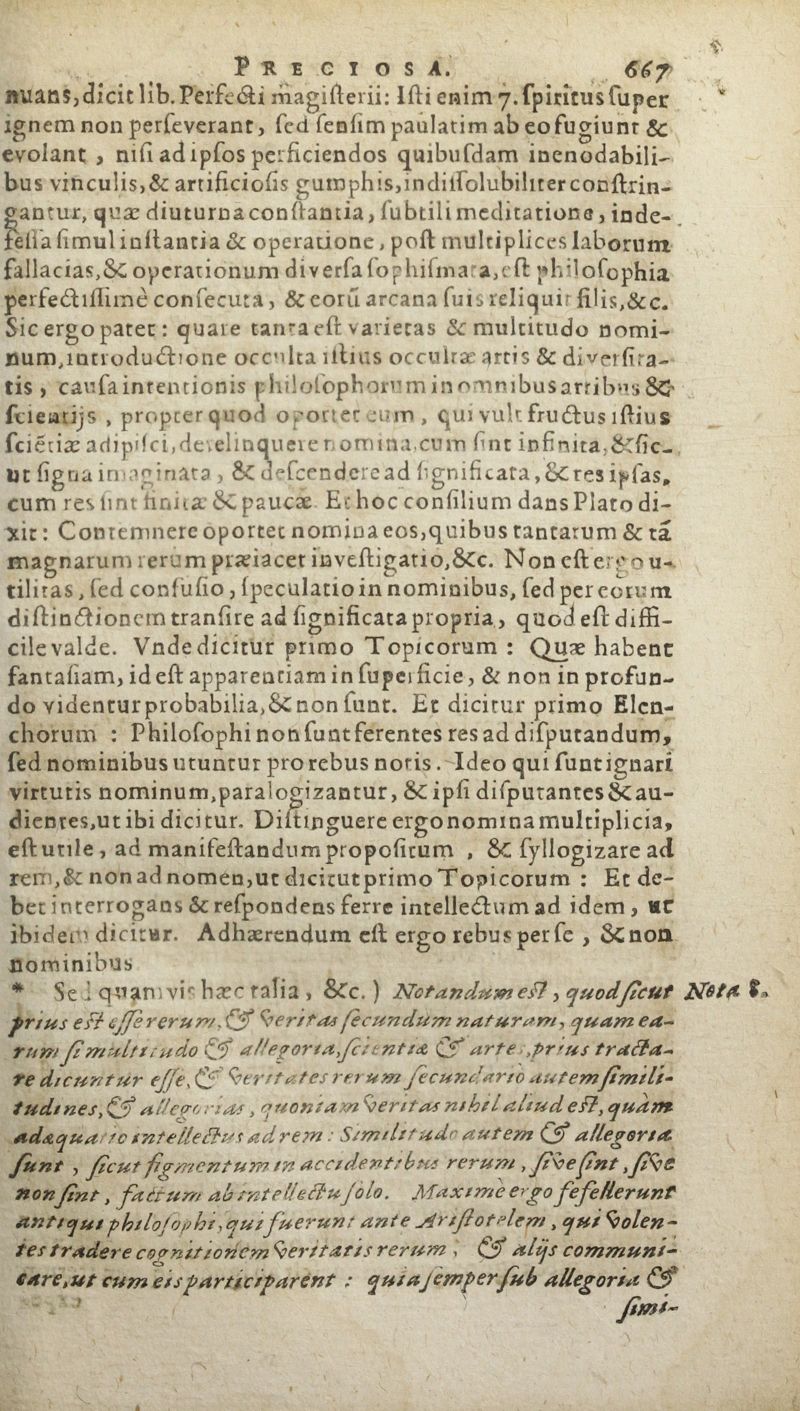 PRECIOSA. 667
nuans, dicit lib. Perfecti magisterii: Isti enim 7. spiritus super
ignem non perseverant, sed sensim paulatim ab eo fugiunt &
evolant, nisi ad ipsos perficiendos quibusdam inenodabili-
bus vinculis, & artificiosis gumphis, indissolubiliter constrin-
gantur, quæ diuturna constantia, subtili meditatione, inde-
fessa simul instantia & operatione, post multiplices laborum
fallacias, & operationum diversa sophismata, est philosophia
perfectissimè consecuta, & eorū arcana suis reliquit filis, &c.
Sic ergo patet: quare tanta est varietas & multitudo nomi-
num, introductione occulta istius occultæ artis & diversita-
tis, causa intentionis philosophorum in omnibus artibus &
scientijs, propter quod oportet eum, qui vult fructus istius
sciētiæ adipisci, derelinquere nomina, cum sint infinita, & sic-
ut signa imaginata, & descendere ad significata, & res ipsas,
cum res sint finitæ & paucæ. Et hoc consilium dans Plato di-
xit: Contemnere oportet nomina eos, quibus tantarum & tā
magnarum rerum præiacet investigatio, &c. Non est ergo u-
tilitas, sed confusio, speculatio in nominibus, sed per eorum
distinctionem transire ad significata propria, quod est diffi-
cile valde. Vnde dicitur primo Topicorum : Quæ habent
fantasiam, id est apparentiam in superficie, & non in profun-
do videntur probabilia, & non sunt. Et dicitur primo Elen-
chorum : Philosophi non sunt ferentes res ad disputandum,
sed nominibus utuntur pro rebus notis. Ideo qui sunt ignari
virtutis nominum, paralogizantur, & ipsi disputantes & au-
dientes, ut ibi dicitur. Distinguere ergo nomina multiplicia,
est utile, ad manifestandum propositum , & syllogizare ad
rem, & non ad nomen, ut dicitut primo Topicorum : Et de-
bet interrogans & respondens ferre intellectum ad idem, ut
ibidem dicitur. Adhærendum est ergo rebus per se , & non
nominibus
* Sed quamvis hæc talia, &c. ) Notandum est, quod sicut Nota
prius est esse rerum, & veritas secundum naturam, quam ea-
rum similitudo & allegoria, scientia & arte, prius tracta-
re dicuntur esse, & veritates rerum secundario autem simili-
tudines, & allegorias, quoniam veritas nihil aliud est, quàm
adæquatio intellectus ad rem : Similitudo autem & allegoria
sunt , sicut figmentum in accidentibus rerum, sive sint, sive
non sint, factum ab intellectu solo. Maxime ergo fefellerunt
antiqui philosophi, qui fuerunt ante Aristotelem, qui volen-
tes tradere cognitionem veritatis rerum , & alijs communi-
care, ut cum eis participarent : quia semper sub allegoria &
simi-